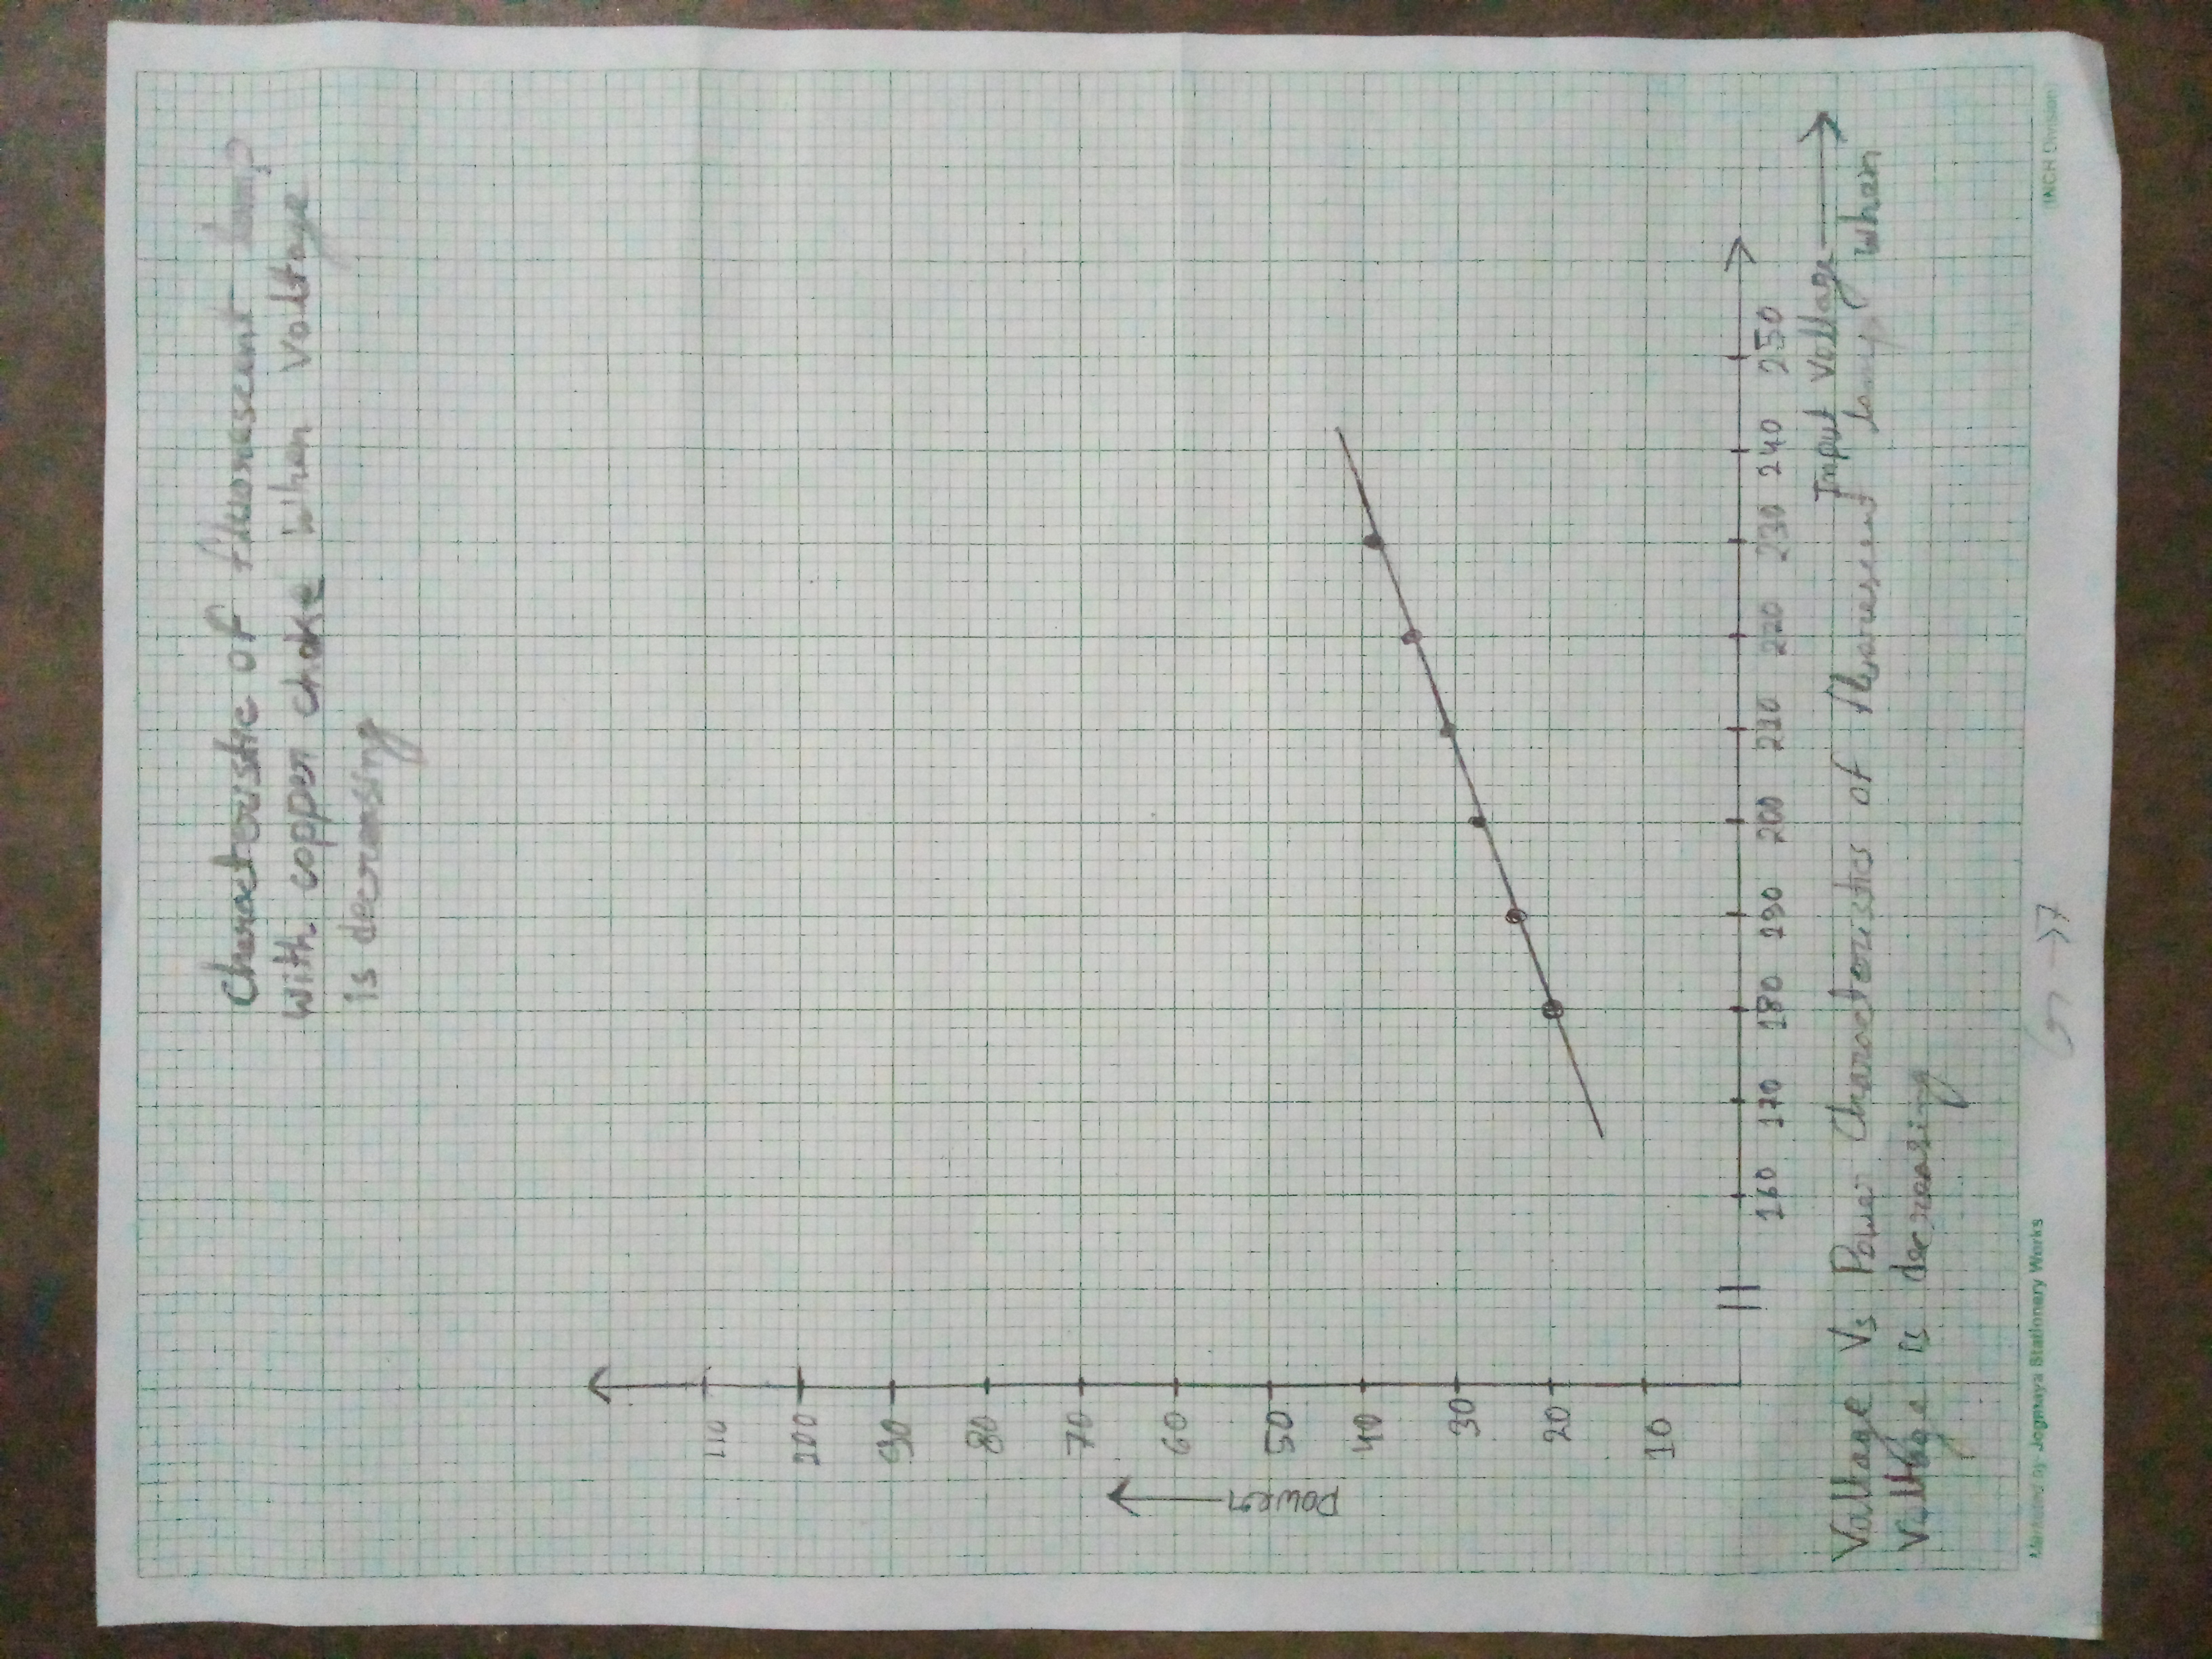 Characteristic of fluorescent lamp
with copper choke when Voltage
is decreasing
110
100
90
80
70
60
50
40
30
20
10
Power
160 170 180 190 200 210 220 230 240 250
Input Voltage
Voltage Vs Power Characteristics of fluorescent lamp when
Voltage is decreasing
Marketed by- Jogmaya Stationary Works
(INCH Division)
→7